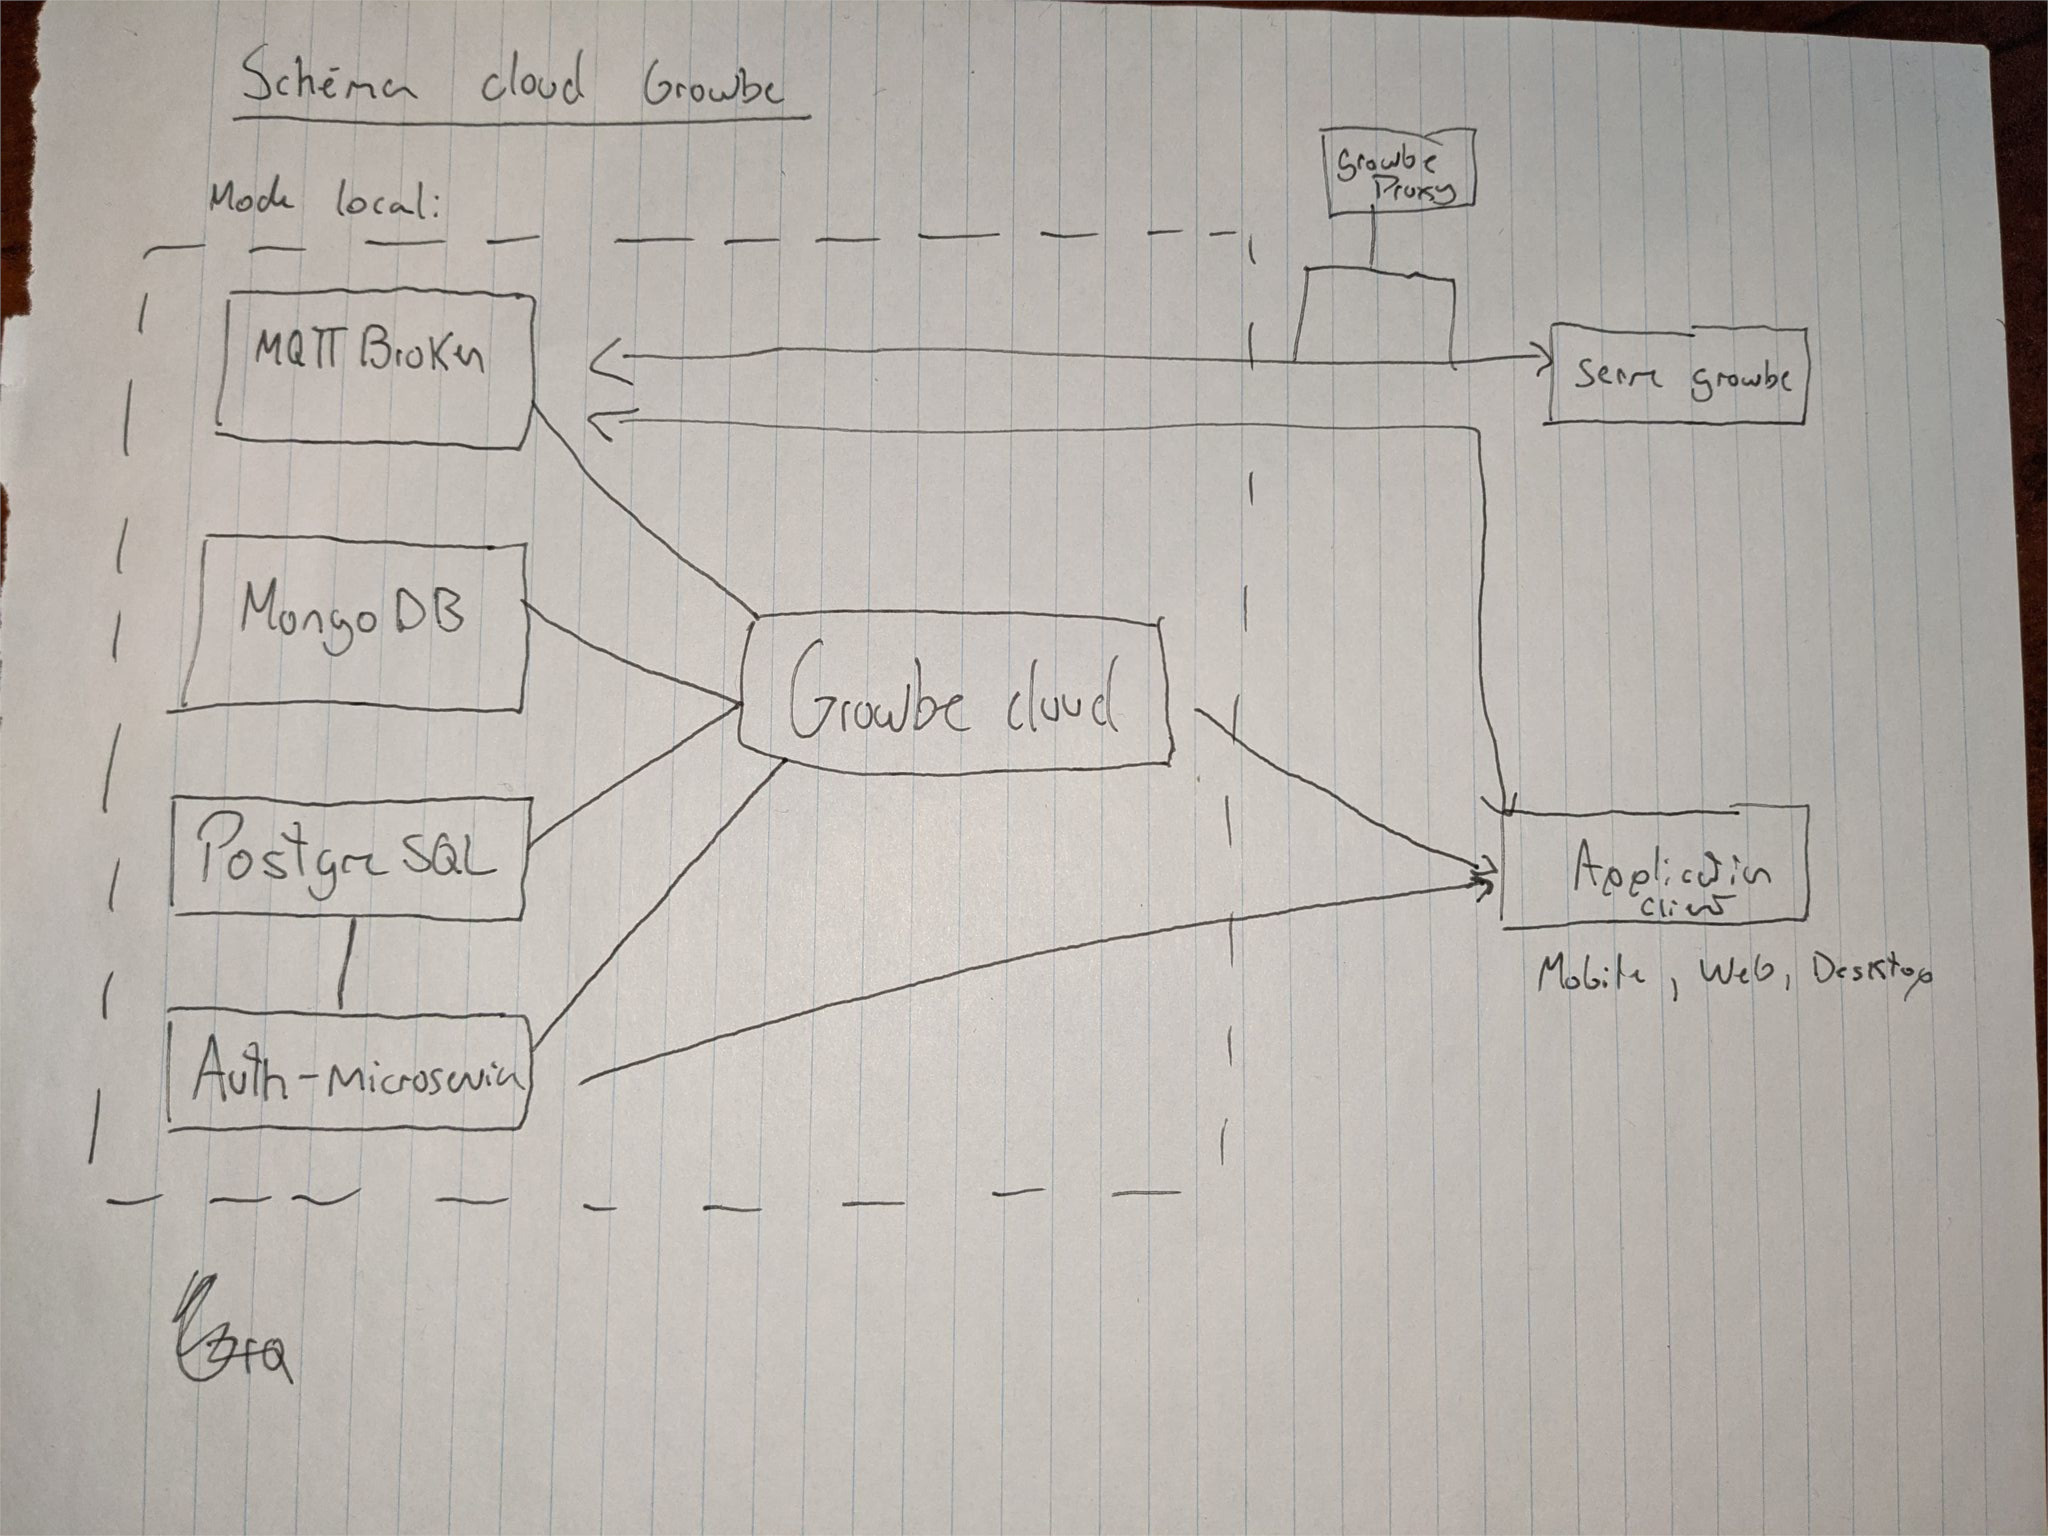 Schéma cloud Growbe
Mode local:
Growbe
Proxy
MQTT Broker
Serre growbe
MongoDB
Growbe cloud
PostgreSQL
Application
client
Mobile, Web, Desktop
Auth-microservice